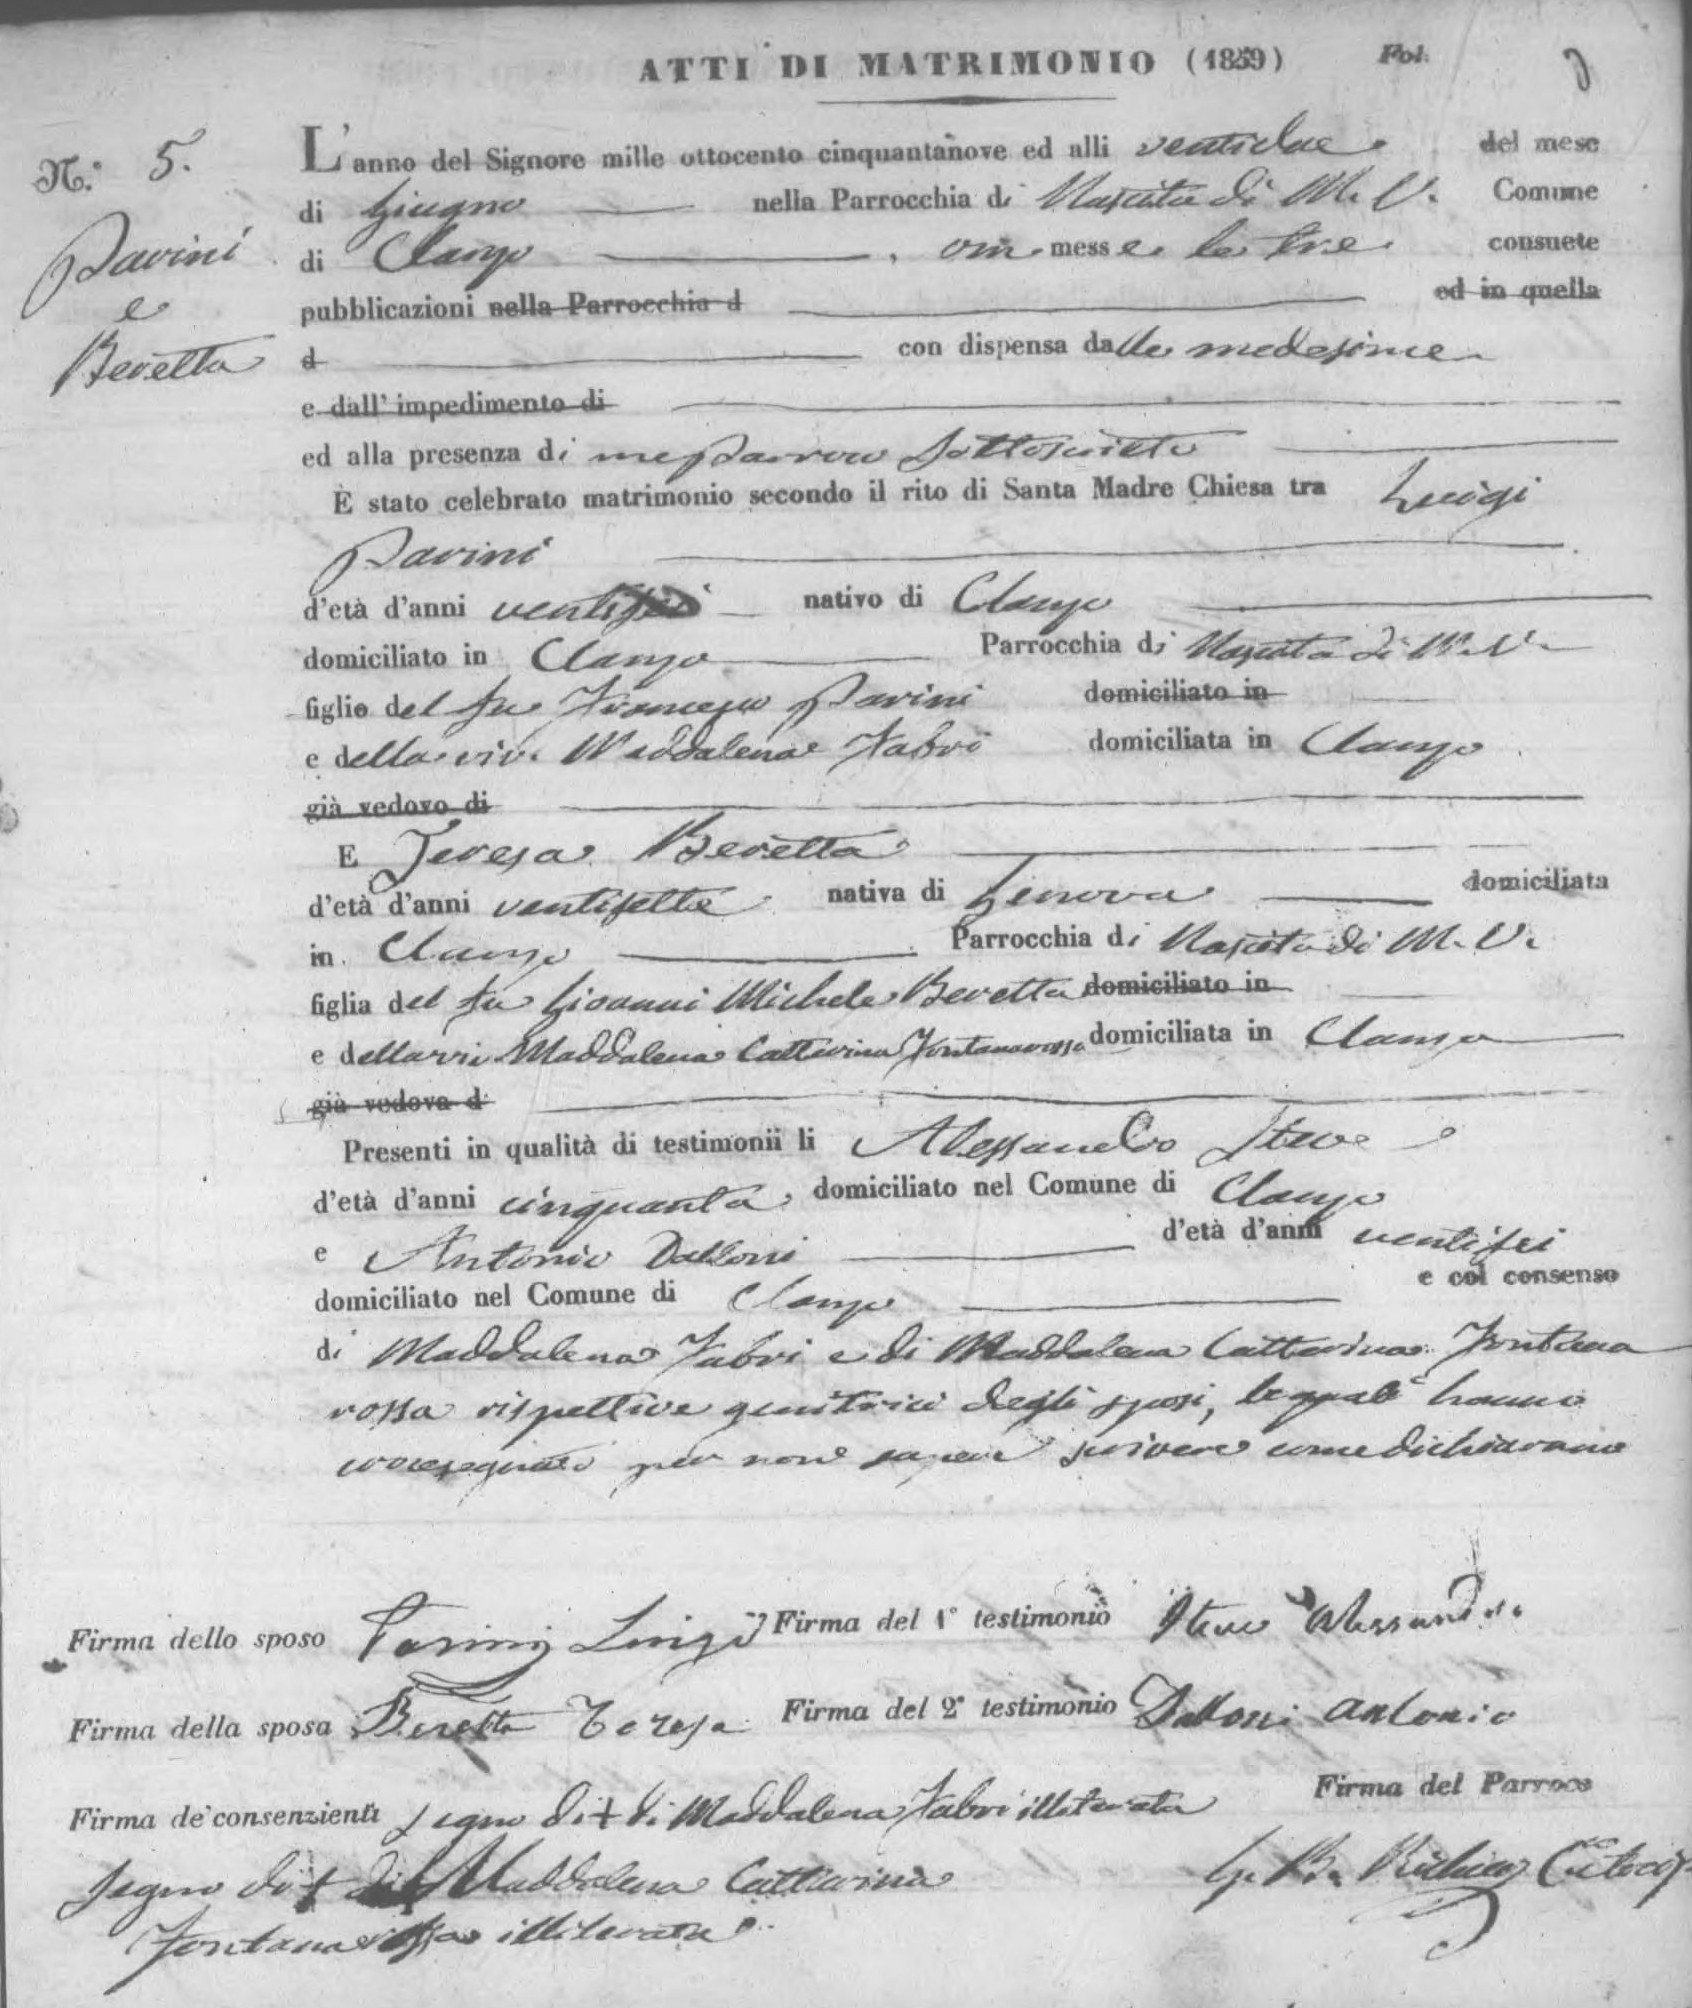 ATTI DI MATRIMONIO (1859) Fol.
N.° 5.
Pavini
e
Beretta
L'anno del Signore mille ottocento cinquantanove ed alli ventidue del mese
di Giugno nella Parrocchia di Nascita di M. V. Comune
di Clanzo, ommesse le tre consuete
pubblicazioni nella Parrocchia d ed in quella
d con dispensa dalle medesime
e dall'impedimento di
ed alla presenza di me Parroco sottoscritto
È stato celebrato matrimonio secondo il rito di Santa Madre Chiesa tra Luigi
Pavini
d'età d'anni ventisei nativo di Clanzo
domiciliato in Clanzo Parrocchia di Nascita di M. V.
figlio del fu Francesco Pavini domiciliato in
e della viv. Maddalena Fabri domiciliata in Clanzo
già vedovo di
E Teresa Beretta
d'età d'anni ventisette nativa di Genova domiciliata
in Clanzo Parrocchia di Nascita di M. V.
figlia del fu Giovanni Michele Beretta domiciliato in
e della viv. Maddalena Catterina Fontanarossa domiciliata in Clanzo
già vedova di
Presenti in qualità di testimonii li Alessandro Steve
d'età d'anni cinquanta domiciliato nel Comune di Clanzo
e Antonio Dalloni d'età d'anni ventisei
domiciliato nel Comune di Clanzo e col consenso
di Maddalena Fabri e di Maddalena Catterina Fontana
rossa rispettive genitrici degli sposi, le quali hanno
crocesegnato per non sapere scrivere come dichiarano
Firma dello sposo Parini Luigi Firma del 1° testimonio Steve Alessandro
Firma della sposa Beretta Teresa Firma del 2° testimonio Dalloni Antonio
Firma de' consenzienti segno di + di Maddalena Fabri illiterata Firma del Parroco
Segno di + di Maddalena Catterina G. B.
Fontanarossa illiterata